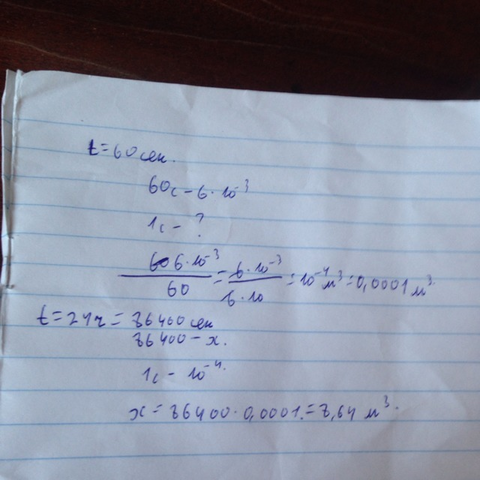 t=60 сек.
60с – 6·10⁻³
1с – ?
6·10⁻³ / 60 = 6·10⁻³ / 6·10 = 10⁻⁴ м³ = 0,0001 м³
t=24ч = 86400 сек
86400 – х.
1с – 10⁻⁴.
х = 86400·0,0001 = 8,64 м³.